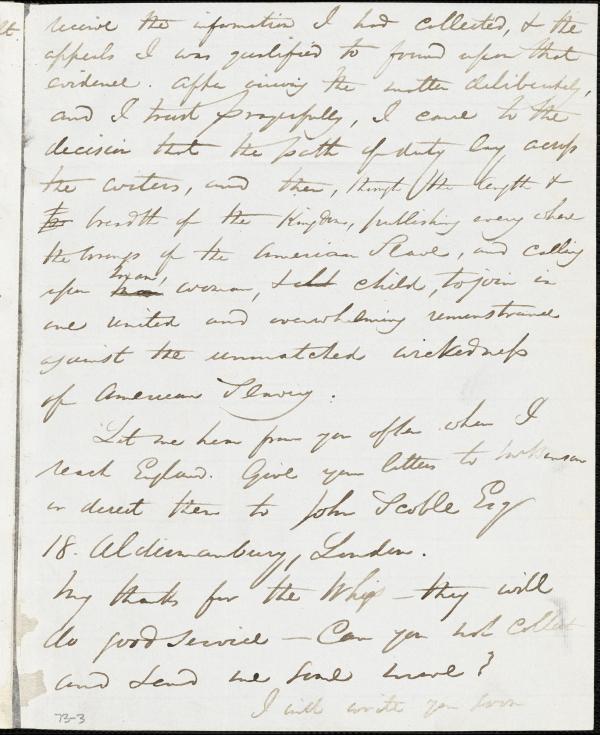 receive the information I had collected, & the
appeals I was qualified to found upon that
evidence. After giving the matter deliberately,
and I trust prayerfully, I came to the
decision that the path of duty lay across
the waters, and then, through the length &
breadth of the Kingdom, publishing every where
the wrongs of the American Slave, and calling
upon man, woman, & child, to join in
one united and overwhelming remonstrance
against the unmatched wickedness
of American Slavery.
Let me hear from you often when I
reach England. Give your letters to
or direct them to John Scoble Esq
18. Aldermanbury, London.
My thanks for the Whip – they will
do good service – Can you not collect
and send me some more?
I will write you soon
73-3